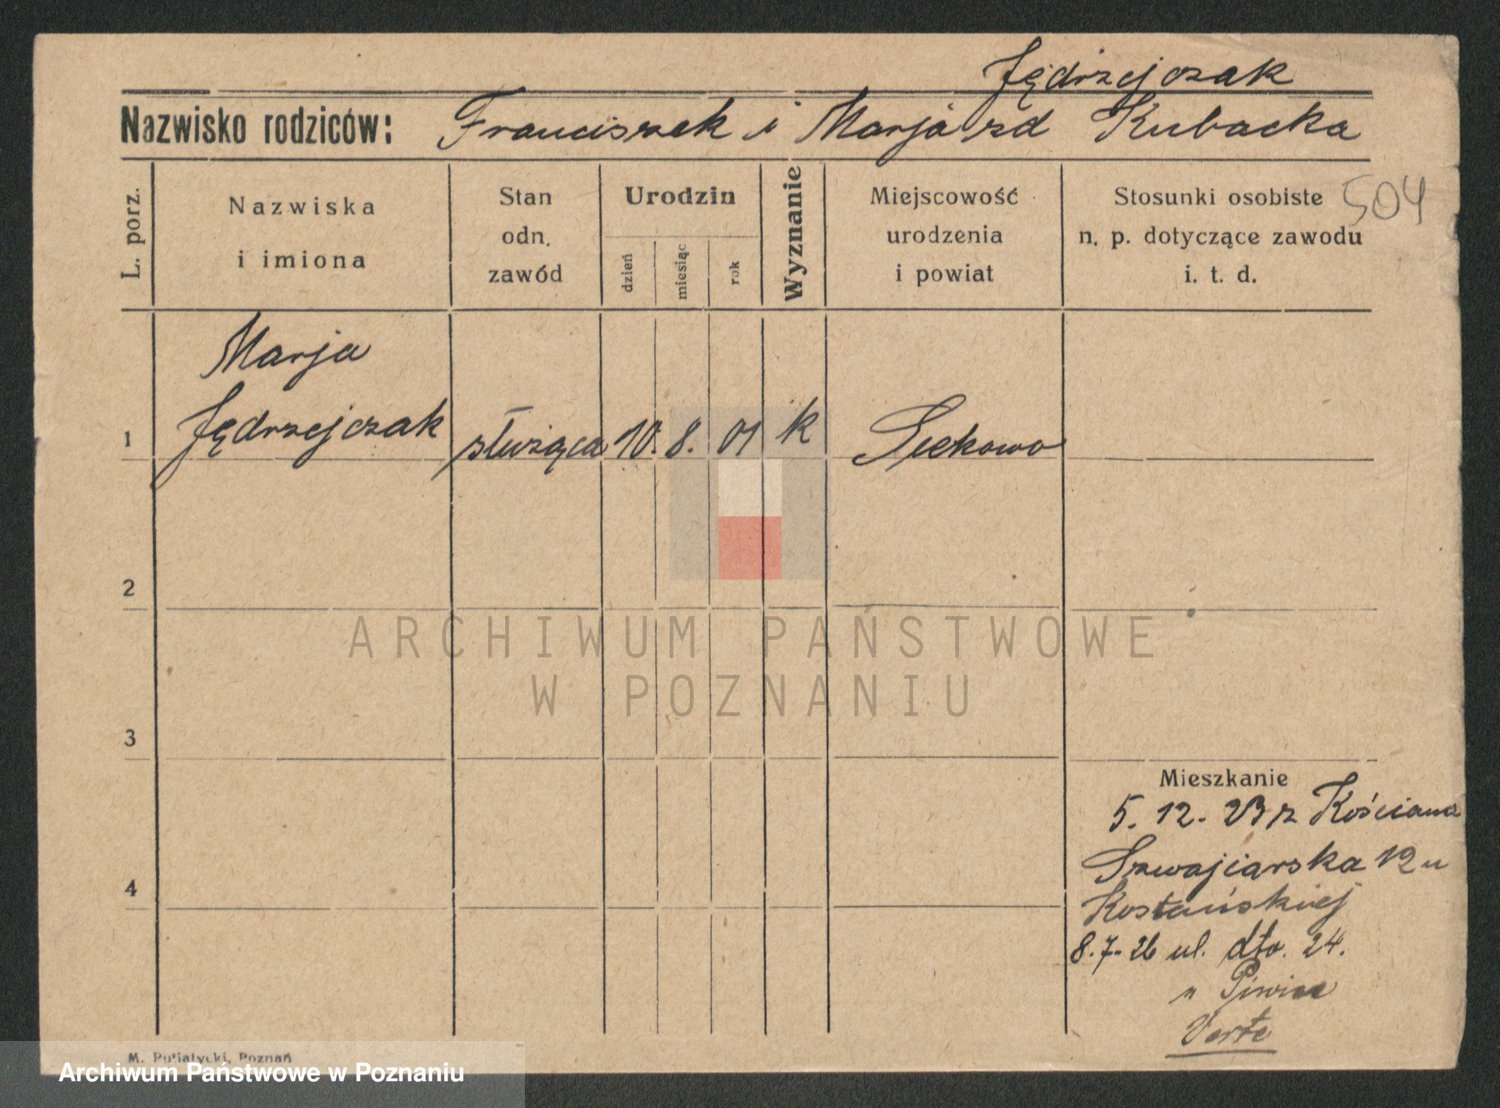 Jędrzejczak
Nazwisko rodziców: Franciszek i Marja zd Kubacka
L. porz.
Nazwiska
i imiona
Stan
odn.
zawód
Urodzin
dzień
miesiąc
rok
Wyznanie
Miejscowość
urodzenia
i powiat
Stosunki osobiste
n. p. dotyczące zawodu
i. t. d.
504
Marja
1 Jędrzejczak służąca 10. 8. 01 k Siekowo
2
3
4
Mieszkanie
5. 12. 23 z Kościana
Szwajcarska 12 u
Kostańskiej
8.7-26 ul. dto. 24.
u
Verte
M. Putiatycki, Poznań
ARCHIWUM PAŃSTWOWE
W POZNANIU
Archiwum Państwowe w Poznaniu